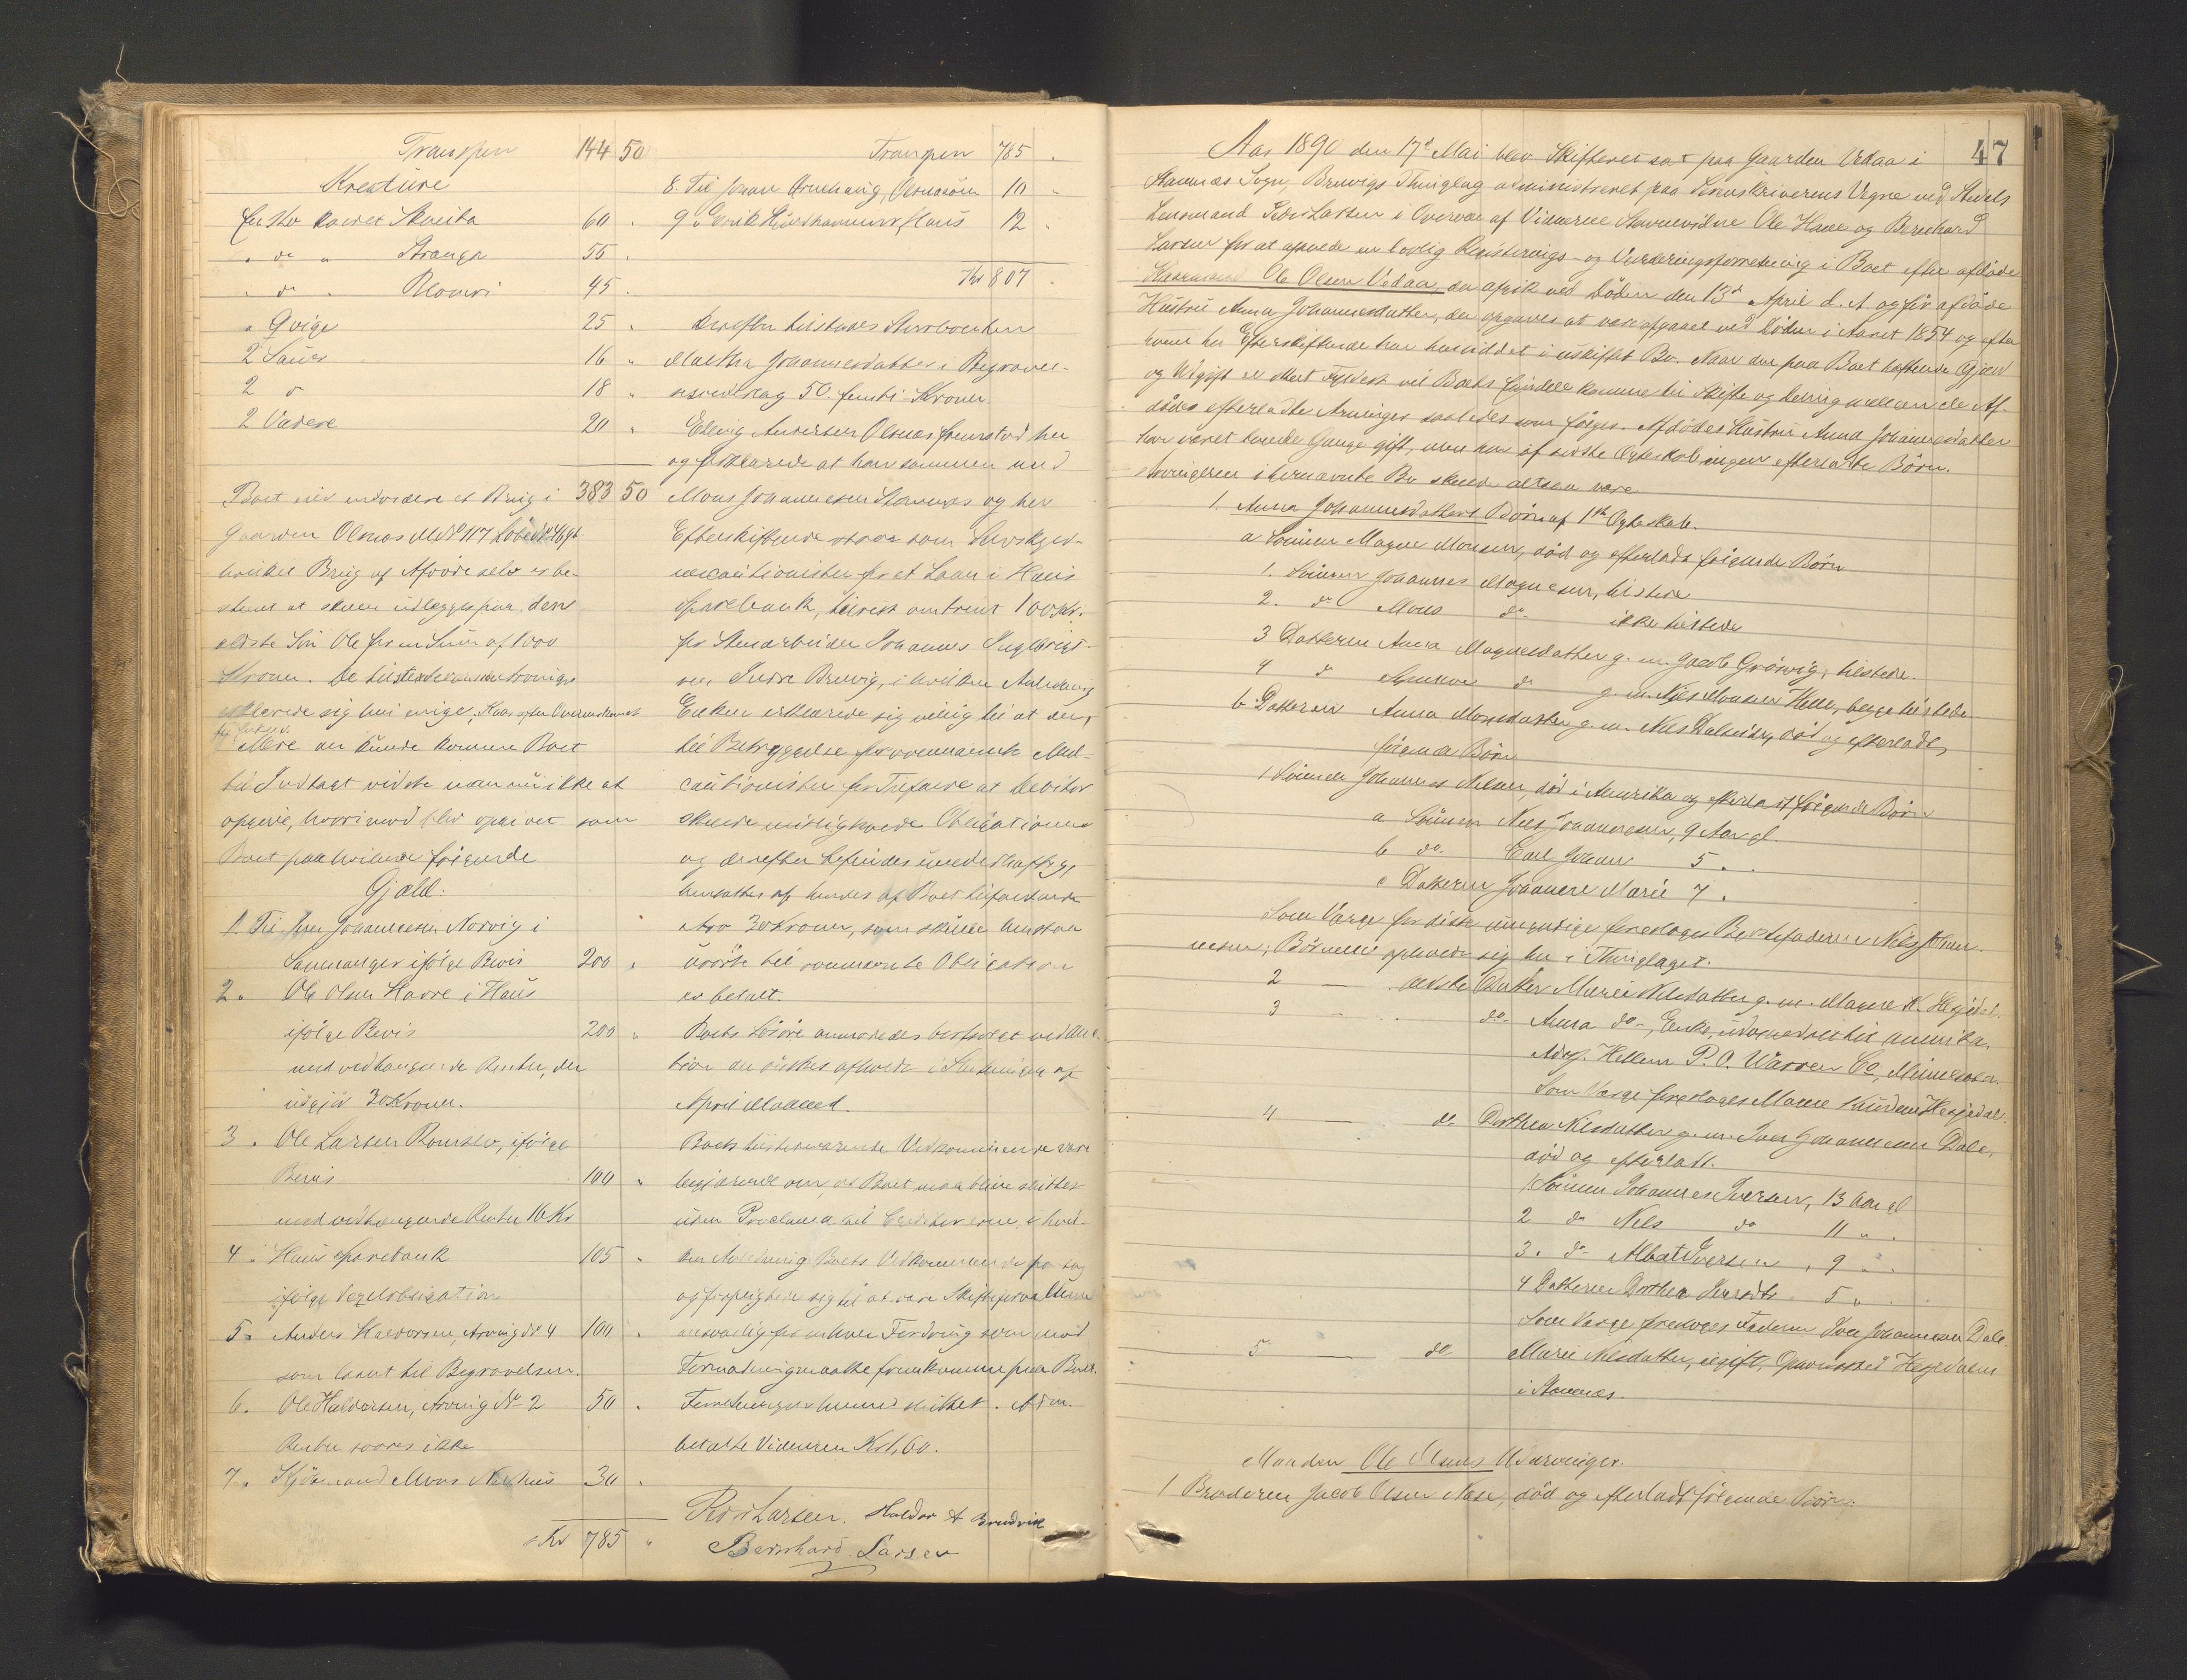 Transpon 144 50
Kreature
En Sto kaldet Skeika 60 .
" do " Stranga 55 .
" do " Blomri 45 .
" Qvige 25 "
2 Sauer 16 "
2 do 18 "
2 Vædere 20 "
383 50
Boet eier endvidere et Brug i
Gaarden Olsnes
hvilket Brug af Afdøde selv er be-
stemt at skulle udlægges paa den
ældste Søn Ole for en Sum af 1000
Kroner. De tilstedeværende Arvinger
erklærede sig heri enige.
Mere der kunde komme Boet
til Indtægt vidste man nu ikke at
opgive, hvorimod blev opgivet som
Boet paahvilende følgende
Gjæld:
1. Til Iver Johannesen Norvig i
Samnanger ifølge Bevis 200 "
2. Ole Olsen Havre i Haus
ifølge Bevis 200 "
med vedhængende Renter, der
udgjør 30 Kroner.
3. Ole Larsen Romslo, ifølge
Bevis 100 "
med vedhængende Renter 16 Kr
4. Haus Sparebank 105 "
ifølge Vexelobligation
5. Anders Haldorsen, Arving No 4 100 "
som laant til Begravelsen.
6. Ole Haldorsen, Arving No 2 50 "
Renter svares ikke
7. Kjøbmand Mons Nedhus 30 "
Kr 785 "
Transpon 785 .
8. Til Johan Arnehaug, Olsnesøen 10 "
9. " Haus 12 "
Kr 807 .
Derefter tilstodes Sterboenken
Martha Johannesdatter i Begravel-
sesudlæg 50. femti Kroner
Ellerig Andersen Olsnes fremstod her
og forklarede at han sammen med
Mons Johannesen Stamnes og her
Efterskiftende staar som Selvskyld-
nercautionister for et Laan i Haus
Sparebank, tilrest omtrent 100 Kr.
for Stenarbeider Johannes Ingebrigt-
sen, Indre Bruvig, i hvilken Anledning
Enken erklærede sig villig til at der,
til Betryggelse for ovennævnte Med-
cautionister for Tilfælde at Debitor
skulde misligholde Obligationen
og derefter befindes uvederhæftig,
hensættes af hendes af Boet tilfaldende
Arv 30 Kroner, som skulde henstaa
urørte til ovennævnte Obligation
er betalt.
Boets Løsøre anmodedes bortsolgt ved Auc-
tion der ønskes afholdt i Slutningen af
April Maaned.
Boets tilstedeværende Vedkommende vare
begjærende om, at Boet maa blive sluttet
uden Proclama til Creditorerne, i hvil-
ken Anledning Boets Vedkommende frasag
og forpligtede sig til at være Skifteforvalteren
ansvarlig for enhver Fordring som mod
Formodning maatte fremkomme paa Boet.
Forretningen hermed sluttet. Adm.
betalte Vidneren Kr 1,60.
Peder Larsen. Haldor A Brudvik
Bernhard Larsen
47
Aar 1890 den 17de Mai blev Skifteret sat paa Gaarden Vedaa i
Stamnes Sogn, Bruvigs Thinglag administreret paa Sorenskriverens Vegne ved Stedets
Lensmand Peder Larsen i Overvær af Vidnerne Stevnevidne Ole Have og Bernhard
Larsen for at afholde en lovlig Registrerings- og Vurderingsforretning i Boet efter afdøde
Ole Olsen Vedaa, der afgik ved Døden den 13de April d. A. og før afdøde
Hustru Anna Johannesdatter, der opgaves at være afgaaet ved Døden i Aaret 1854 og efter
hvem her Efterskiftende har hensiddet i uskiftet Bo. Naar den paa Boet hæftende Gjæld
og Udgift er skeet Fyldest vil Boets Ejendele komme til Skifte og Deling mellem de Af-
dødes efterladte Arvinger saaledes som følger. Afdødes Hustru Anna Johannesdatter
har været tvende Gange gift, men har af sidste Ægteskab ingen efterladte Børn.
Arvingerne i bemeldte Bo skulde altsaa være
1. Anna Johannesdatters Børn af 1ste Ægteskab.
a Sønnen Magne Monsen, død og efterladt følgende Børn
1. Sønnen Johannes Magnesen, tilstede
2. do Mons do ikke tilstede
3 Datteren Anna Magnesdatter g. m. Jacob Grøsvig, tilstede.
4 do do g. m. Nils Monsen Helle, begge tilstede
b Datteren Anna Monsdatter g. m. Nils Dalseide, død og efterladt
følgende Børn
1 Sønnen Johannes Nilsen, død i Amerika og efterladt følgende Børn
a Sønnen Nils Johannesen, 9 Aar gl.
b do. Carl Johan 5 . .
c Datteren Johanne Marie 7 .
Som Værge for disse umyndige foresloges Bedstefaderen Nils Johan-
nesen; Børnene opholde sig her i Thinglaget.
2 — ældste Datter Marie Nilsdatter g. m. Magne K. Hesjedal.
3 — do- Anna do-, Enke, udvandret til Amerika,
Adr. Hellem P. O. Warren Co, Minnesota.
Som Værge foresloges Magne Knudsen Hesjedal.
4 — do Dorthea Nilsdatter g. m. Iver Johannesen Dale,
død og efterladt.
1 Sønnen Johannes Iversen, 13 Aar gl
2 do Nils do 11 " .
3. do Albert Iversen , 9 " .
4 Datteren Dorthea Iversdtr 5 "
Som Værge foresloges Faderen Iver Johannesen Dale
5 — do Marie Nilsdatter, ugift, Opholdssted Hesjedalen
i Stamnes.
Manden Ole Olsens Udarvinger.
1 Broderen Jacob Olsen Næse, død og efterladt følgende Børn: